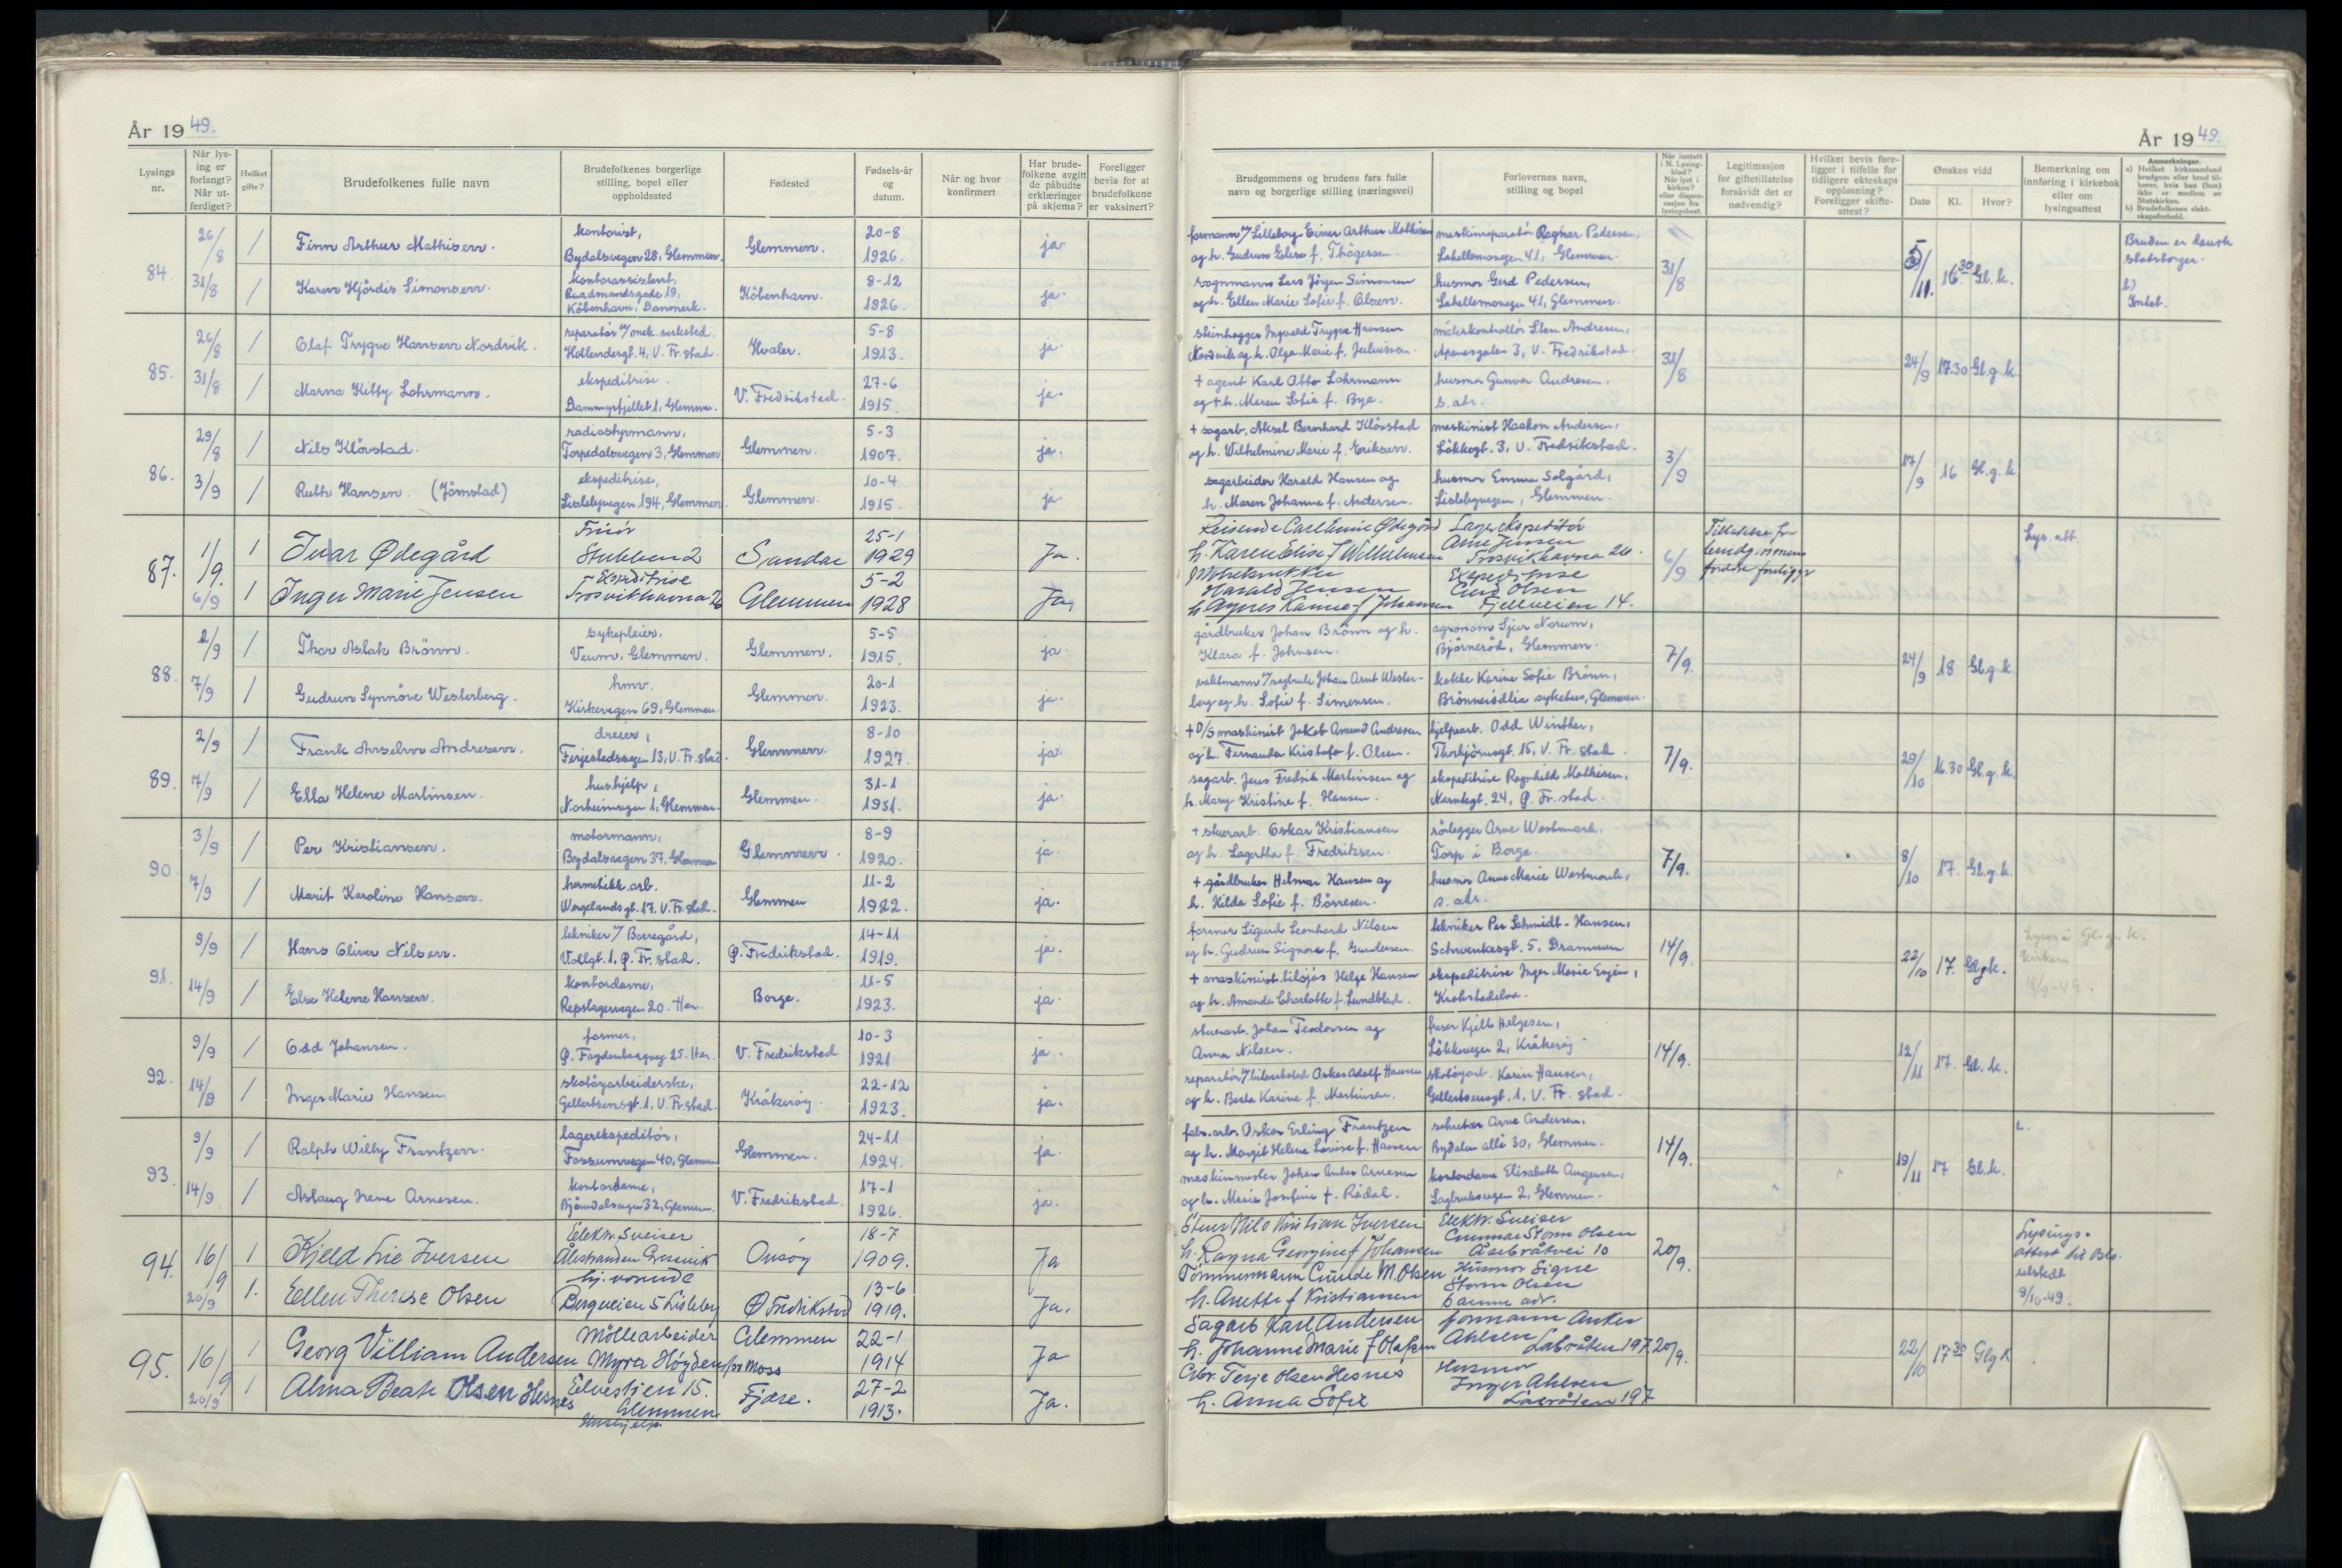 År 19 49.
År 19 49.
Lysings nr.
Når lysing er forlangt? Når utferdiget?
Hvilket gifte?
Brudefolkenes fulle navn
Brudefolkenes borgerlige stilling, bopel eller oppholdssted
Fødested
Fødsels-år og datum.
Når og hvor konfirmert
Har brudefolkene avgitt de påbudte erklæringer på skjema?
Foreligger bevis for at brudefolkene er vaksinert?
Brudgommens og brudens fars fulle navn og borgerlige stilling (næringsvei)
Forlovernes navn, stilling og bopel
Når inntatt i N. Lysingblad? Når lyst i kirken? eller dispensasjon fra lysingsbest.
Legitimasjon for giftetillatelse forsåvidt det er nødvendig?
Hvilket bevis foreligger i tilfelle for tidligere ekteskaps oppløsning? Foreligger skifteattest?
Ønskes vidd
Dato
Kl.
Hvor?
Bemerkning om innføring i kirkebok eller om lysingsattest
Anmerkninger.
a) Hvilket kirkesamfund brudgom eller brud tilhører, hvis han (hun) ikke er medlem av Statskirken.
b) Brudefolkenes slektskapsforhold.
84.
26/8 1 Finn Arthur Mathisen. kontorist, Bydalsvegen 28, Glemmen. Glemmen. 20-8 1926. ja
formann v/ Lilleborg Einar Arthur Mathisen og h. Gudrun Elise f. Thøgersen. maskinreparatør Ragnar Pedersen, Lahellemovegen 41, Glemmen.
31/8 1 Karen Hjördis Simonsen. kontorassistent, Raadmandsgade 19, Köbenhavn, Danmark. Köbenhavn. 8-12 1926. ja.
vognmann Lars Jörgen Simonsen og h. Ellen Marie Sofie f. Olsen. husmor Gerd Pedersen, Lahellemovegen 41, Glemmen.
31/8 5/11. 16 30 Gl. k. Bruden er dansk statsborger. b) Intet.
85.
26/8 1 Olaf Trygve Hansen Nordvik. reparatör v/ mek. verksted. Hollendergt. 4, V. Fr.stad. Hvaler. 5-8 1913. ja.
steinhugger Ingvald Trygve Hansen Nordvik og h. Olga Marie f. Juliussen. målerkontrollör Sten Andresen, Apenesgaten 3, V. Fredrikstad.
31/8 1 Marna Kitty Lohrmann. ekspeditrise. Dammyrfjellet 1, Glemmen. V. Fredrikstad. 27-6 1915. ja.
+ agent Karl Otto Lohrmann og + h. Maren Sofie f. Bye. husmor Gunvor Andresen. s. adr.
31/8 24/9 17.30 Gl.g.k.
86.
29/8 1 Nils Klövstad. radiostyrmann, Torpedalsvegen 3, Glemmen Glemmen. 5-3 1907. ja.
+ sagarb. Aksel Bernhard Klövstad og h. Wilhelmine Marie f. Eriksen. maskinist Haakon Andersen, Lökkegt. 3, V. Fredrikstad.
3/9 1 Ruth Hansen. (Jörnstad) ekspeditrise, Lislebyvegen 194, Glemmen. Glemmen. 10-4 1915. ja
sagarbeider Harald Hansen og h. Maren Johanne f. Andersen. husmor Emma Solgård, Lislebyvegen, Glemmen.
3/9 17/9 16 Gl.g.k
87.
1/9. 1 Ivar Ødegård Frisör Stubben 2 Sandar 25-1 1929 Ja.
Reisende Carl Emil Ødegård h. Karen Elise f Wilhelmsen Lagerekspeditör Arne Jensen Trosvikhavna 26.
6/9 1 Inger Marie Jensen Ekspeditrise Trosvikhavna 26 Glemmen 5-2 1928 Ja,
Harald Jensen h. Agnes f Johansen Ekspeditrise Olsen Fjellveien 14.
6/9 Tillatelse fra brudg. foreligger Lys. att.
88.
2/9 1 Thor Aslak Brönn. sykepleier, Veum, Glemmen. Glemmen. 5-5 1915. ja
gårdbruker Johan Brönn og h. Klara f. Johnsen. agronom Sjur Norum, Björneröd, Glemmen.
7/9 1 Gudrun Synnöve Westerberg. hmv. Kirkevegen 69, Glemmen. Glemmen. 20-1 1923. ja.
vaktmann v/ sagbruk Johan Arnt Westerberg og h. Sofie f. Simensen. kokke Karine Sofie Brönn, Brönneriödlia sykehus, Glemmen.
7/9. 24/9 18 Gl.g.k
89.
2/9 1 Frank Anselm Andresen. dreier, Ferjestedsvegen 13, V. Fr.stad. Glemmen. 8-10 1927. ja.
+ D/S maskinist Jakob Amund Andresen og h. Fernanda Kristofa f. Olsen. hjelpearb. Odd Winther, Thorbjörnsgt. 15, V. Fr. stad.
7/9 1 Ella Helene Martinsen. hushjelp, Norheimvegen 1, Glemmen. Glemmen. 31-1 1931. ja.
sagarb. Jens Fredrik Martinsen og h. Mary Kristine f. Hansen. ekspeditrise Ragnhild Mathisen, Narntegt. 24, Ø. Fr. stad.
7/9. 29/10 16.30 Gl.g.k.
90.
3/9 1 Per Kristiansen. motormann, Bydalsvegen 37, Glemmen Glemmen. 8-9 1920. ja.
+ stuerarb. Oskar Kristiansen og h. Lagertha f. Fredriksen. rörlegger Arne Westmark. Torp i Borge.
7/9 1 Marit Karoline Hansen. hermetikk.arb. Wergelandsgt. 17. V. Fr. stad. Glemmen 11-2 1922. ja.
+ gårdbruker Hilmar Hansen og h. Hilda Sofie f. Börresen. husmor Anne Marie Westmark, s. adr.
7/9. 8/10 17. Gl.g.k
91.
9/9 1 Hans Oliver Nilsen. tekniker v/ Borregård, Vollgt. 1, Ø. Fr. stad. Ø. Fredrikstad. 14-11 1919. ja.
former Sigurd Leonhard Nilsen og h. Gudrun Signora f. Gundersen. tekniker Per Schmidt-Hansen, Schwenkesgt. 5, Drammen
14/9 1 Else Helene Hansen. kontordame, Repslagervegen 20. Her. Borge. 11-5 1923. ja.
+ maskinist tilsjös Helge Hansen og h. Amanda Charlotte f. Lundblad. ekspeditrise Inger Marie Evjen, Krokstadelva.
14/9. 22/10 17. Gl.g.k. Lyses i Gl. g. k. kirken 18/9-49.
92.
9/9 1 Odd Johansen. former, Ø. Frydenbergveg 25. Her. V. Fredrikstad 10-3 1921 ja.
stuerarb. Johan Teodorsen og Anna Nilsen. freser Kjell Helgesen, Lökkevegen 2, Kråkeröy
14/9 1 Inger Marie Hansen skotöyarbeiderske, Gellertsensgt. 1. V. Fr. stad. Kråkeröy. 22-12 1923. ja.
reparatör v/ bilverksted Oskar Adolf Hansen og h. Berta Karine f. Martinsen. skotöyarb. Karin Hansen, Gellertsensgt. 1. V. Fr. stad.
14/9. 12/11 17. Gl. k.
93.
9/9 1 Ralph Willy Frantzen. lagerekspeditör, Fossumvegen 40, Glemmen Glemmen. 24-11 1924. ja.
fabr.arb. Oskar Erling Frantzen og h. Margit Helene Lovise f. Hansen sekretær Arne Andersen, Bydalen allé 30, Glemmen.
14/9 1 Aslaug Irene Arnesen. kontordame, Björndalsvegen 32, Glemmen. V. Fredrikstad. 17-1 1926. ja.
maskinmester Johan Anker Arnesen og h. Marie Josefine f. Rådal. kontordame Elisabeth Jürgensen, Sagbruksvegen 2, Glemmen.
14/9. 19/11 17 Gl.k. L.
94.
16/9 1 Kjeld Lie Iversen Elektr. Sveiser Ålestranden Gressvik Onsöy 18-7 1909. Ja
Stuer Nils Kristian Iversen h. Ragna Georgine f Johansen Elektr. Sveiser Gunnar Storm Olsen Åsebråtvei 10
20/9 1. Ellen Therese Olsen hj. værende Bergveien 5 Lisleby Ø Fredrikstad 13-6 1919. Ja.
Tömmermann Gunde M. Olsen h. Anette f Kristiansen Husmor Signe Storm Olsen samme adr.
20/9. Lysingsattest utstedt 8/10-49.
95.
16/9 1 Georg Villiam Andersen Möllearbeider Myra Höyden pr Moss Glemmen 22-1 1914 Ja
Sagarb Karl Andersen h. Johanne Marie f Olafsen formann Anker Ahlsen Labråten 197
20/9 1 Alma Beate Olsen Hesnes Eilvestien 15. Glemmen Hushjelp. Fjære. 27-2 1913. Ja.
Arb. Terje Olsen Hesnes h. Anna Sofie Husmor Inger Ahlsen Labråten 197
20/9. 22/10 17 30 Glg K